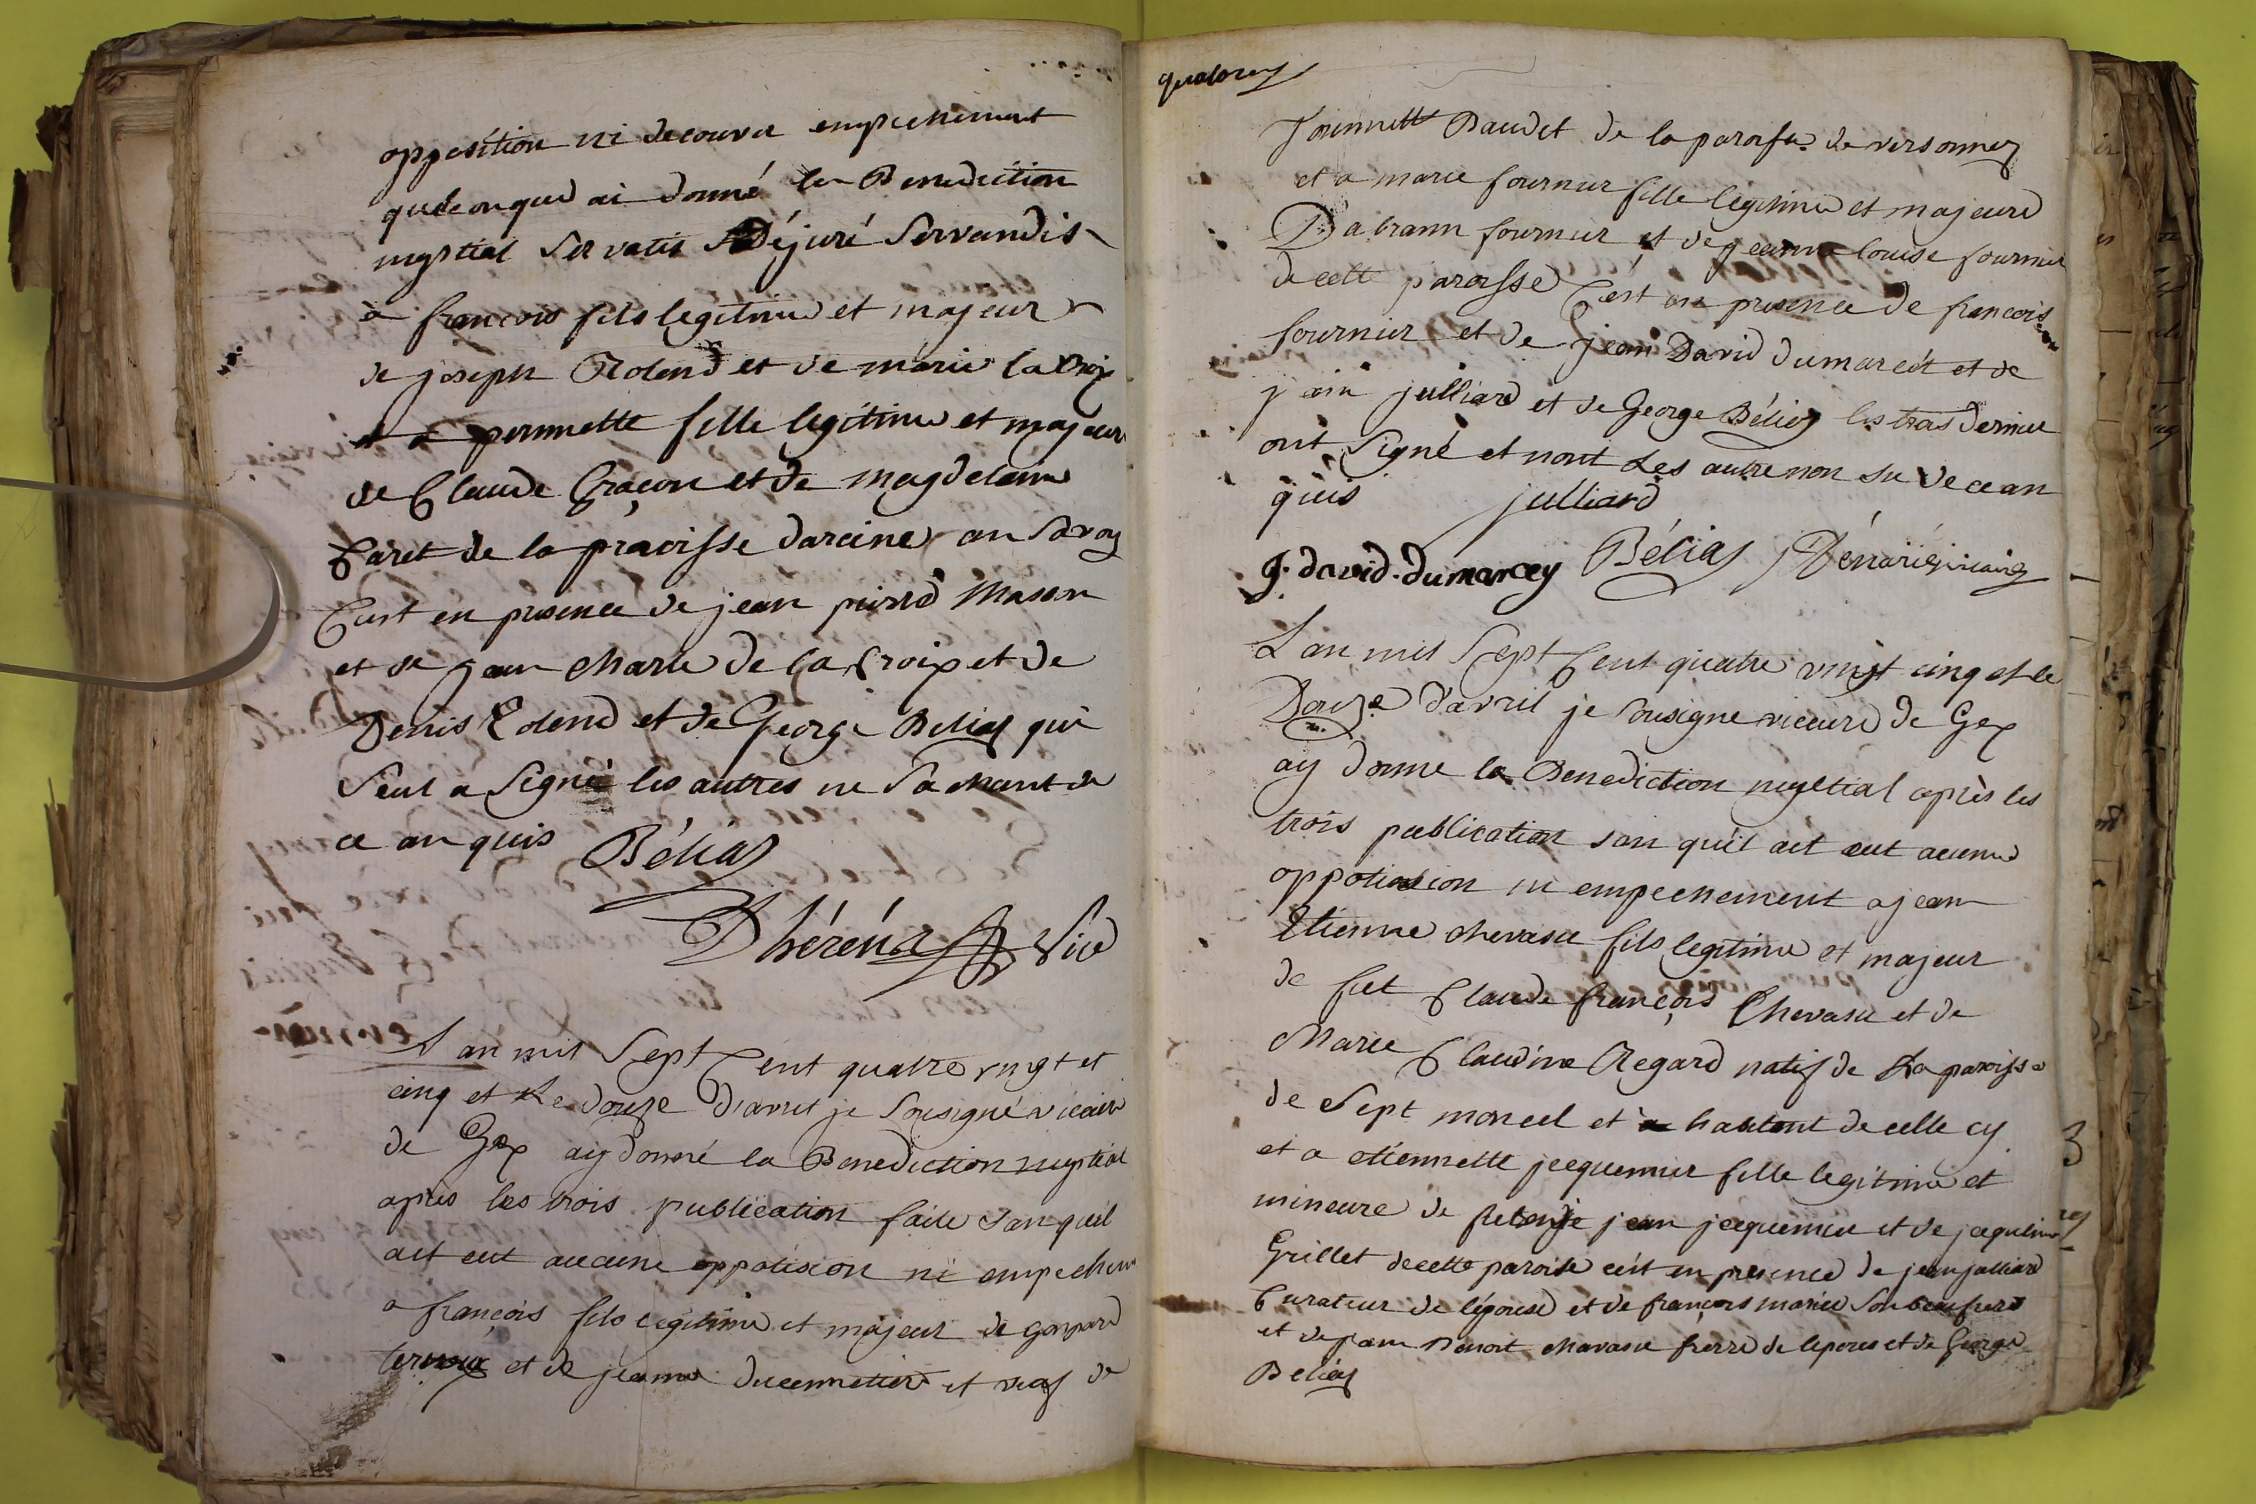 opposition ni decouver empechement
quelconque ai donné la Benediction
nuptial servatis Déjuré servandis
à françois fils legitime et majeur
de joseph Rolend et de marie la Croix
et a pernnette fille legitime et majeur
de Claude Graçon et de magdelenne
Caret de la praroisse darcine en Savoy
C'est en presence de jean pierre Masson
et de jean Marie De la Croix et de
Denis Rolend et de George Beliez qui
seul a signé les autres ne sachant de
ce anquis Béliaz
Dhéréna Vice
L'an mil sept Cent quatre vingt et
cinq et Le douze d'avril je sousigné vicaire
de Gex aÿ donné la Benediction nuptial
apres les trois publication faite san quil
ait eut aucune oppotision ni empechem
a françois fils legitime et majeur de gaspard
et de jeanne ducennetier et de
quatorze
Baudet de la paroisse de versonnex
et a marie fournier fille legitime et majeure
D'abram fournier et de jeanne louise fournier
de cette paroisse C'est en presence de françois
fournier et de jean David dumarcét et de
jean julliard et de George Béliez les trois dernier
ont signé et nont Les autre non su de ce an
quis julliard
J. david. dumarcey Béliaz
L'an mil sept Cent quatre vingt cinq et le
Douze d'avril je sousigne viccaire de Gex
aÿ donne la Benediction nuptial après les
trois publication san qu'il ait eut aucune
oppotision ni empechement a jean
Etienne chevasu fils legitime et majeur
de fut Claude françois Chevasu et de
Marie Claudine Regard natif de La paroisse
de Sept moncel et habitent de celle cy
et a etiennette jeequemier fille legitime et
mineure de jean jeequemier et de jaqueline
Grillet de cette paroisse cést en presence de jean julliard
Curateur de lépouse et de françois mariée son beaufrere
et de jean Benoit chavasu frerre de lepoux et de George
Beliez
3